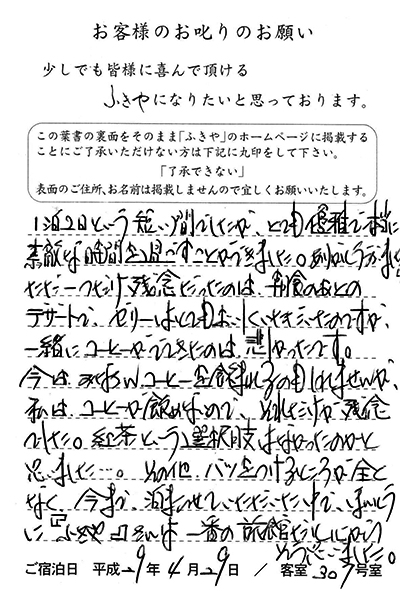 お客様のお叱りのお願い
少しでも皆様に喜んで頂ける
ふきやになりたいと思っております。
この葉書の裏面をそのまま「ふきや」のホームページに掲載する
ことにご了承いただけない方は下記に丸印をして下さい。
「了承できない」
表面のご住所、お名前は掲載しませんので宜しくお願いいたします。
1泊2日という短い間でしたが、とても優雅で
素敵な時間を過ごすことができました。ありがとうございました
ただ一つだけ残念だったのは、朝食のあとの
デザートで、ゼリーはとてもおいしくいただいたのですが、
一緒にコーヒーがでてきたのは悲しかったです。
今は みなさん コーヒーを飲まれるのかもしれませんが、
私は、コーヒーが飲めないので、それだけが残念
でした。紅茶という選択肢はなかったのかと
思いました…。その他、バツをつけるところが全く
なく、今まで、泊まらせていただいた中で、本当
に ふきやさんは 一番の旅館だと心から
そう思いました。
ご宿泊日 平成29年4月29日 / 客室307号室